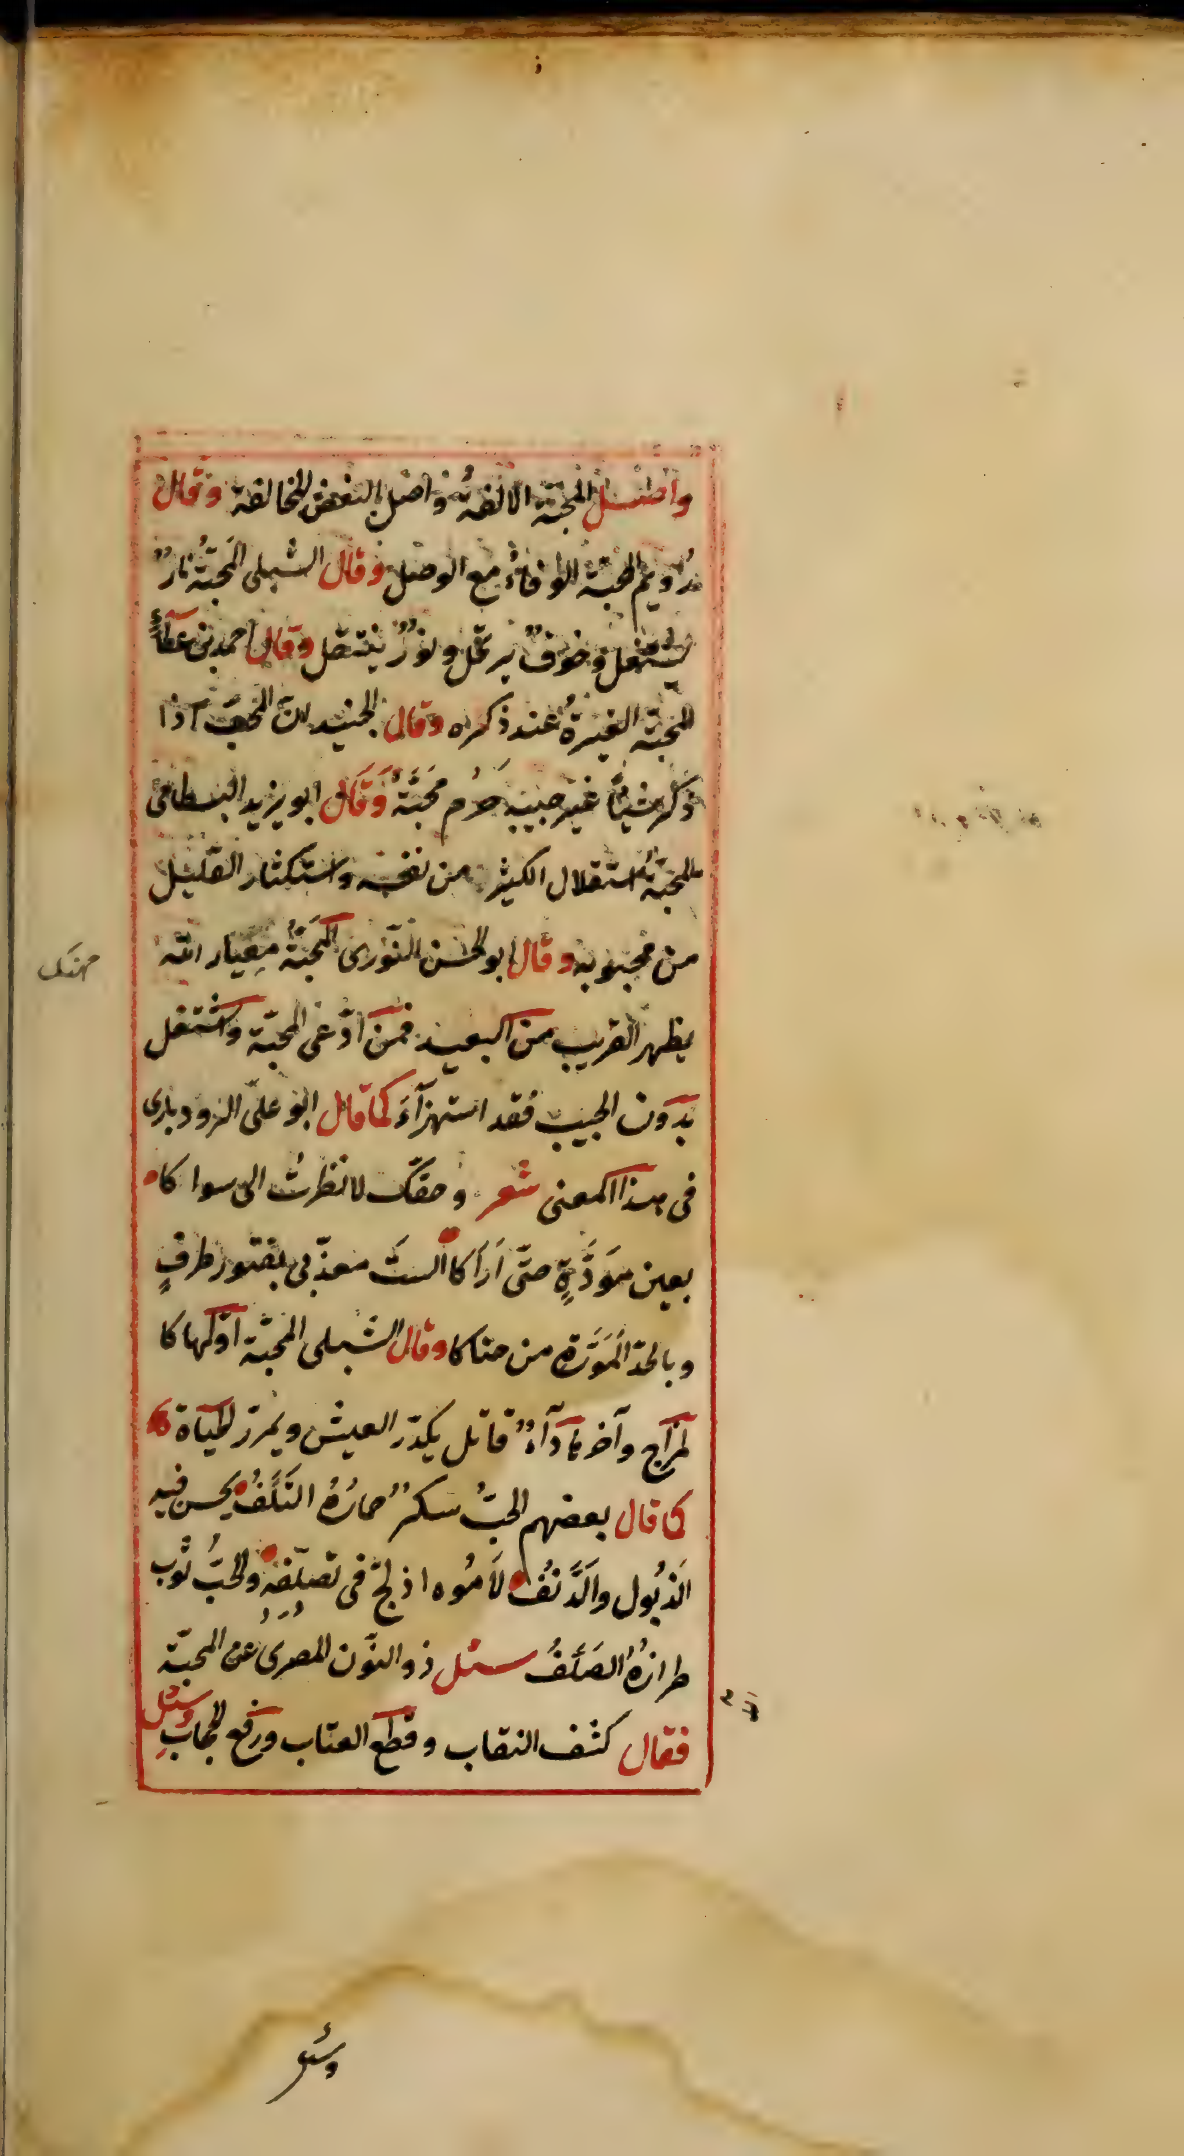 واصل المحبة الالفةُ واصل البغض المخالفة وقال
رُويم المحبة الوفاءُ مع الوصل وقال الشبلى المَحبّةُ نارٌ
تشتعل وخوفٌ يرتحل ونورٌ ينتقل وقال احمد بن عطآءٍ
المحبّة الغيرةُ عند ذكره وقال الجنيد انّ المحبّ اذا
ذكر شيئًا غير حبيبه حَرُم مَحَبَّةً وَقَال ابو يزيد البسطامى
المحبّةُ استقلال الكثير من نفسه واستكثار القليل
من محبوبه وقال ابو الحسن النّورى المَحَبّةُ مِعيار الله
يظهر القريب من البعيد فمن ادّعى المحبّة واشتغل
بدون الحبيب فقد استهزآءَ كما قال ابو علىّ الرودبارى
فى هذا المعنى شعر وحقّك لا نظرتُ الى سواكا
بعين مَوَدَّةٍ حتّى اَرَاكا الستَ معذّبى بفتور طرفٍ
وبالخدّ المَوَرَّدِ من حناكا وقال الشبلى المحبّة اوّلها كا
لمزاج وآخرها دآءٌ قاتل يكدّر العيش ويمرّر الحياة
كما قال بعضهم الحبُّ سكرٌ خمارُهُ التَلَفُ يحسن فيه
الذبُول والَدَّنفُ لاَمُوه اذ لجّ فى تصلّفهِ والحبُّ ثوب
طرازُهُ الصَلَفُ سئل ذو النّون المصرىُ عن المحبّة
فقال كشف النقاب وقطع العتاب ورفع الحجابِ وسئل
وسئل